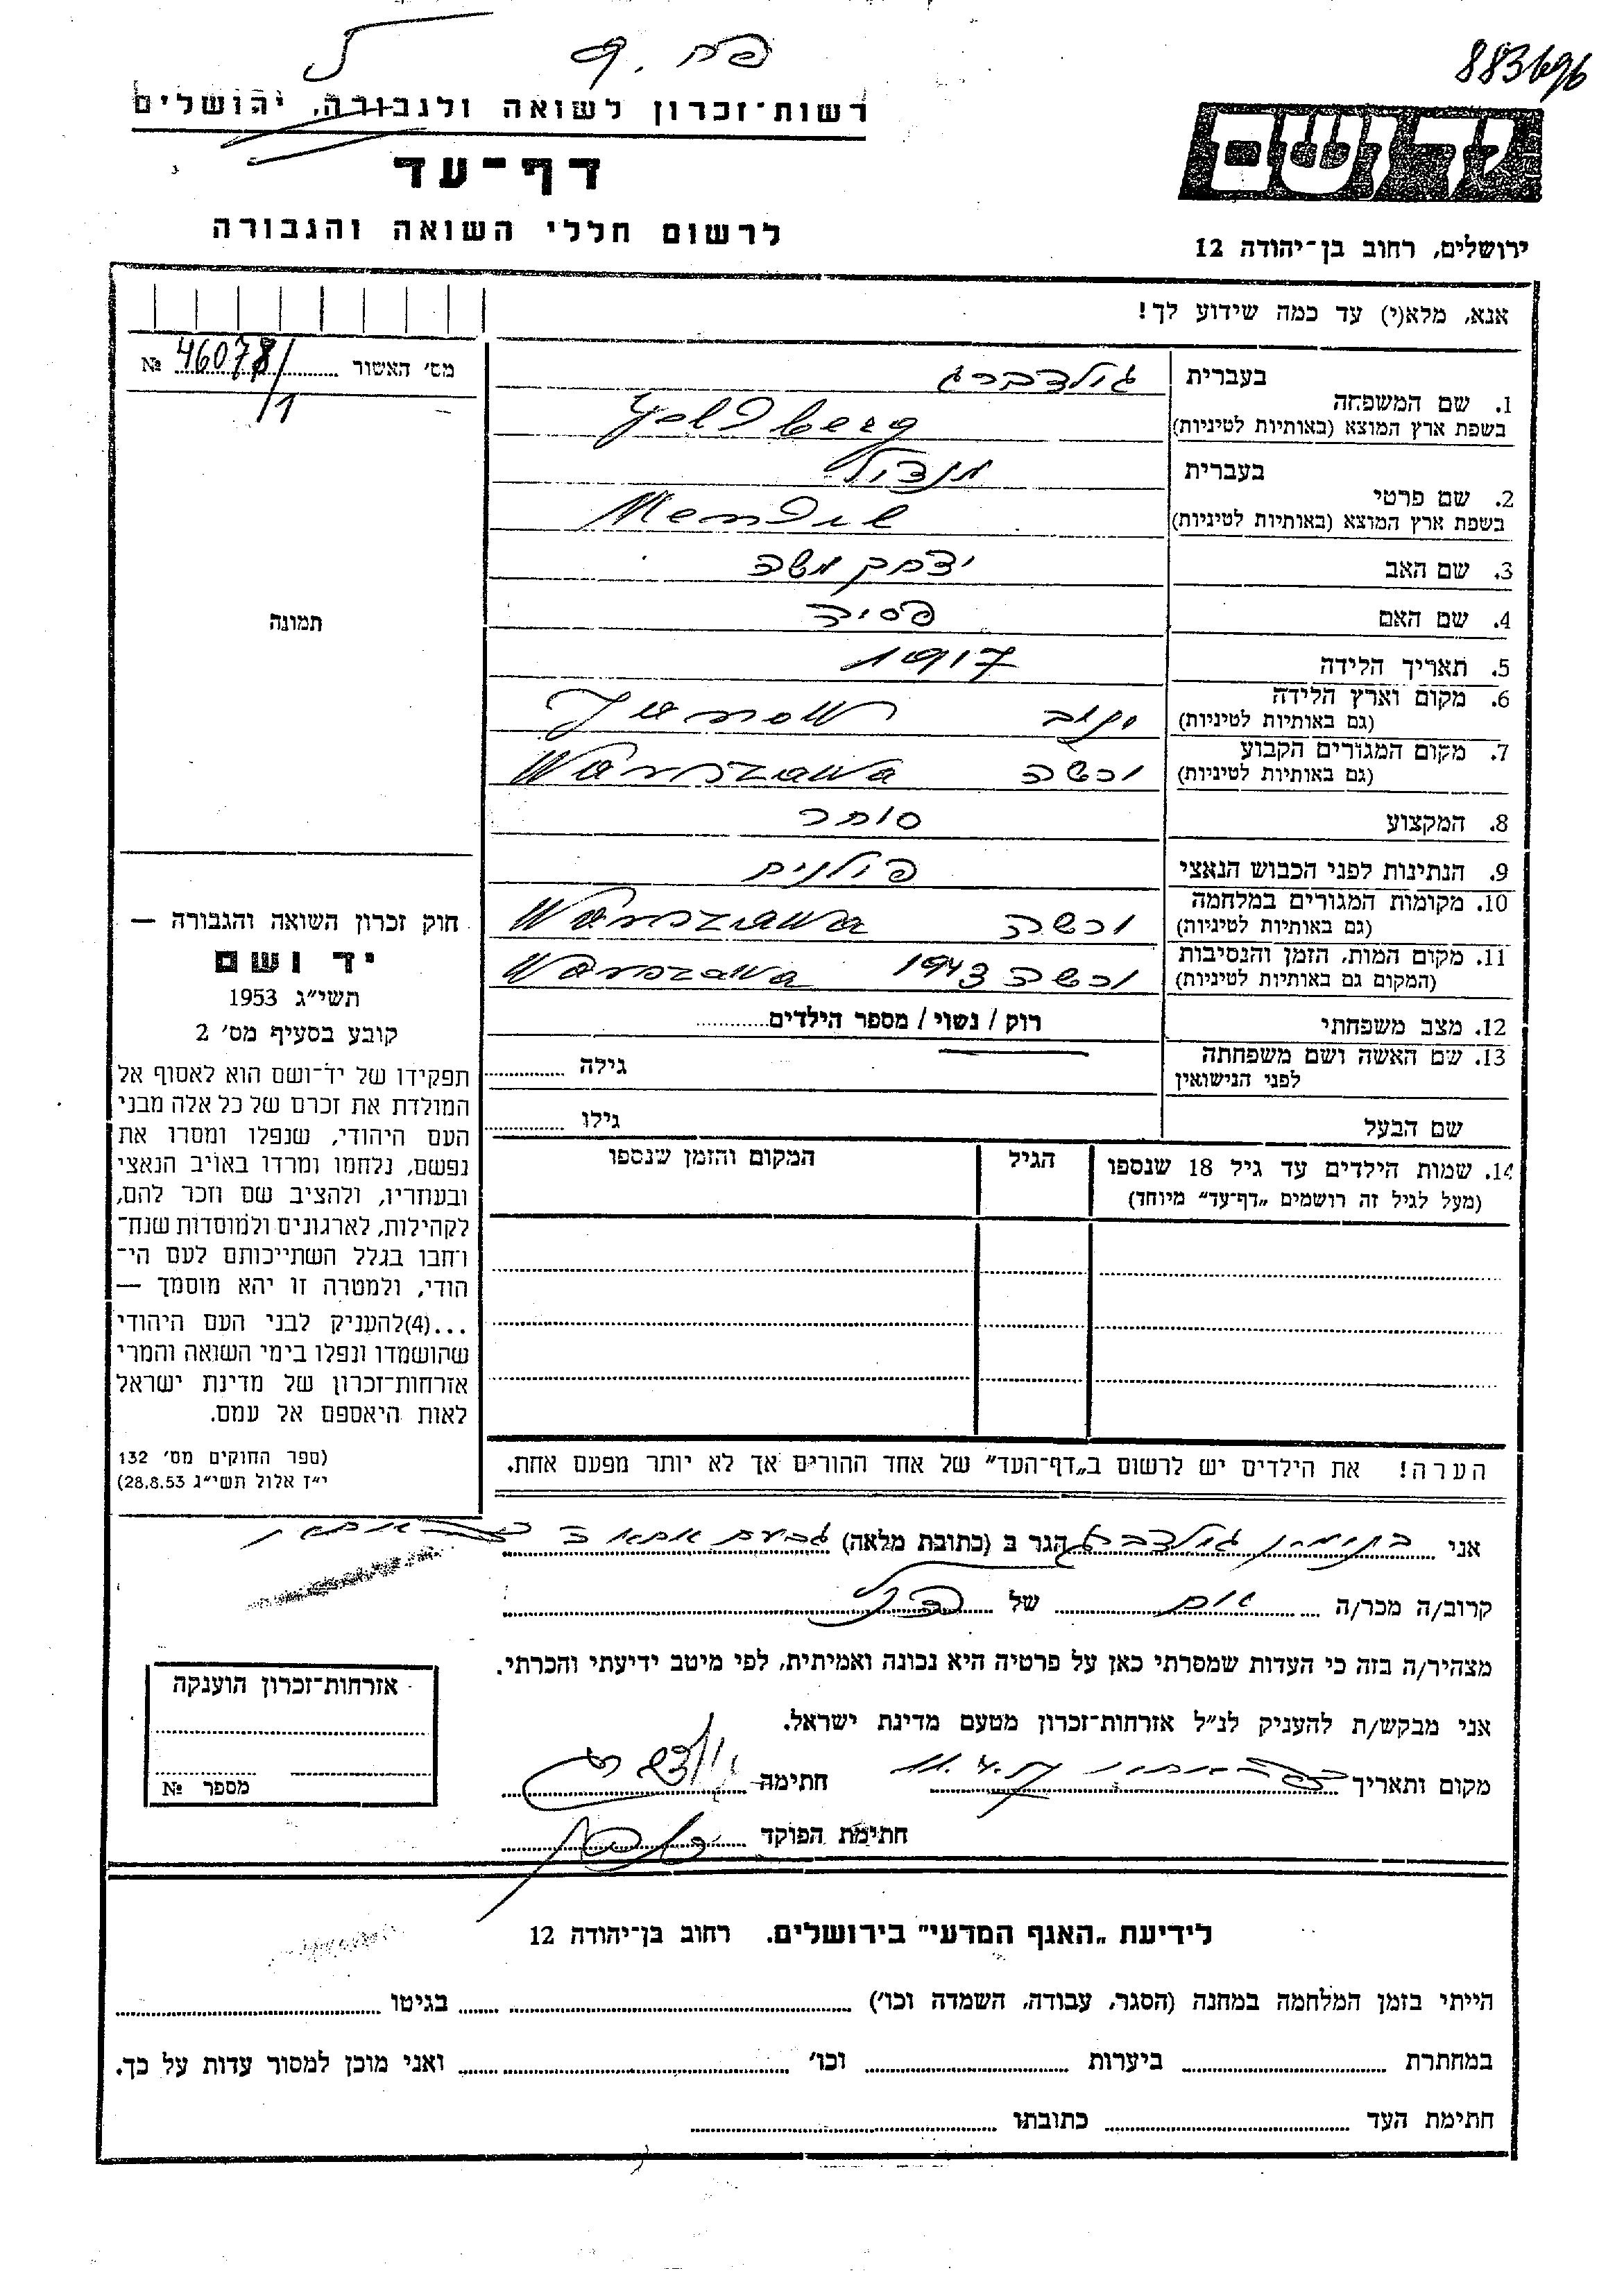 883696
פח. 9
רשות־זכרון לשואה ולגבורה, ירושלים
יד ושם
דף־עד
לרשום חללי השואה והגבורה
ירושלים, רחוב בן־יהודה 12
אנא, מלא(י) עד כמה שידוע לך!
מס׳ האשור 46078/1 №
תמונה
1. שם המשפחה
בעברית גולדברג
בשפת ארץ המוצא (באותיות לטיניות) Goldberg
2. שם פרטי
בעברית מנדיל
בשפת ארץ המוצא (באותיות לטיניות) Mendil
3. שם האב יצחק משה
4. שם האם פסיה
5. תאריך הלידה 1917
6. מקום וארץ הלידה (גם באותיות לטיניות) ינוב Janow
7. מקום המגורים הקבוע (גם באותיות לטיניות) ורשה Warszawa
8. המקצוע סוחר
9. הנתינות לפני הכבוש הנאצי פולנית
10. מקומות המגורים במלחמה (גם באותיות לטיניות) ורשה Warszawa
11. מקום המות, הזמן והנסיבות (המקום גם באותיות לטיניות) ורשה 1943 Warszawa
12. מצב משפחתי רוק / נשוי / מספר הילדים
13. שם האשה ושם משפחתה לפני הנישואין גילה
שם הבעל גילו
14. שמות הילדים עד גיל 18 שנספו
(מעל לגיל זה רושמים „דף־עד” מיוחד)
הגיל
המקום והזמן שנספו
הערה! את הילדים יש לרשום ב„דף־העד” של אחד ההורים אך לא יותר מפעם אחת.
חוק זכרון השואה והגבורה —
יד ושם
תשי״ג 1953
קובע בסעיף מס׳ 2
תפקידו של יד־ושם הוא לאסוף אל
המולדת את זכרם של כל אלה מבני
העם היהודי, שנפלו ומסרו את
נפשם, נלחמו ומרדו באויב הנאצי
ובעוזריו, ולהציב שם וזכר להם,
לקהילות, לארגונים ולמוסדות שנח־
רבו בגלל השתייכותם לעם הי־
הודי, ולמטרה זו יהא מוסמך —
...(4)להעניק לבני העם היהודי
שהושמדו ונפלו בימי השואה והמרי
אזרחות־זכרון של מדינת ישראל
לאות היאספם אל עמם.
(ספר החוקים מס׳ 132
י״ז אלול תשי״ג 28.8.53)
אני בנימין גולדברג הגר ב (כתובת מלאה)
קרוב/ה מכר/ה אח של הנ״ל
מצהיר/ה בזה כי העדות שמסרתי כאן על פרטיה היא נכונה ואמיתית, לפי מיטב ידיעתי והכרתי.
אני מבקש/ת להעניק לנ״ל אזרחות־זכרון מטעם מדינת ישראל.
מקום ותאריך חתימה
חתימת הפוקד
אזרחות־זכרון הוענקה
מספר №
לידיעת „האגף המדעי” בירושלים. רחוב בן־יהודה 12
הייתי בזמן המלחמה במחנה (הסגר, עבודה, השמדה וכו׳) בגיטו
במחתרת ביערות וכו׳ ואני מוכן למסור עדות על כך.
חתימת העד כתובתו